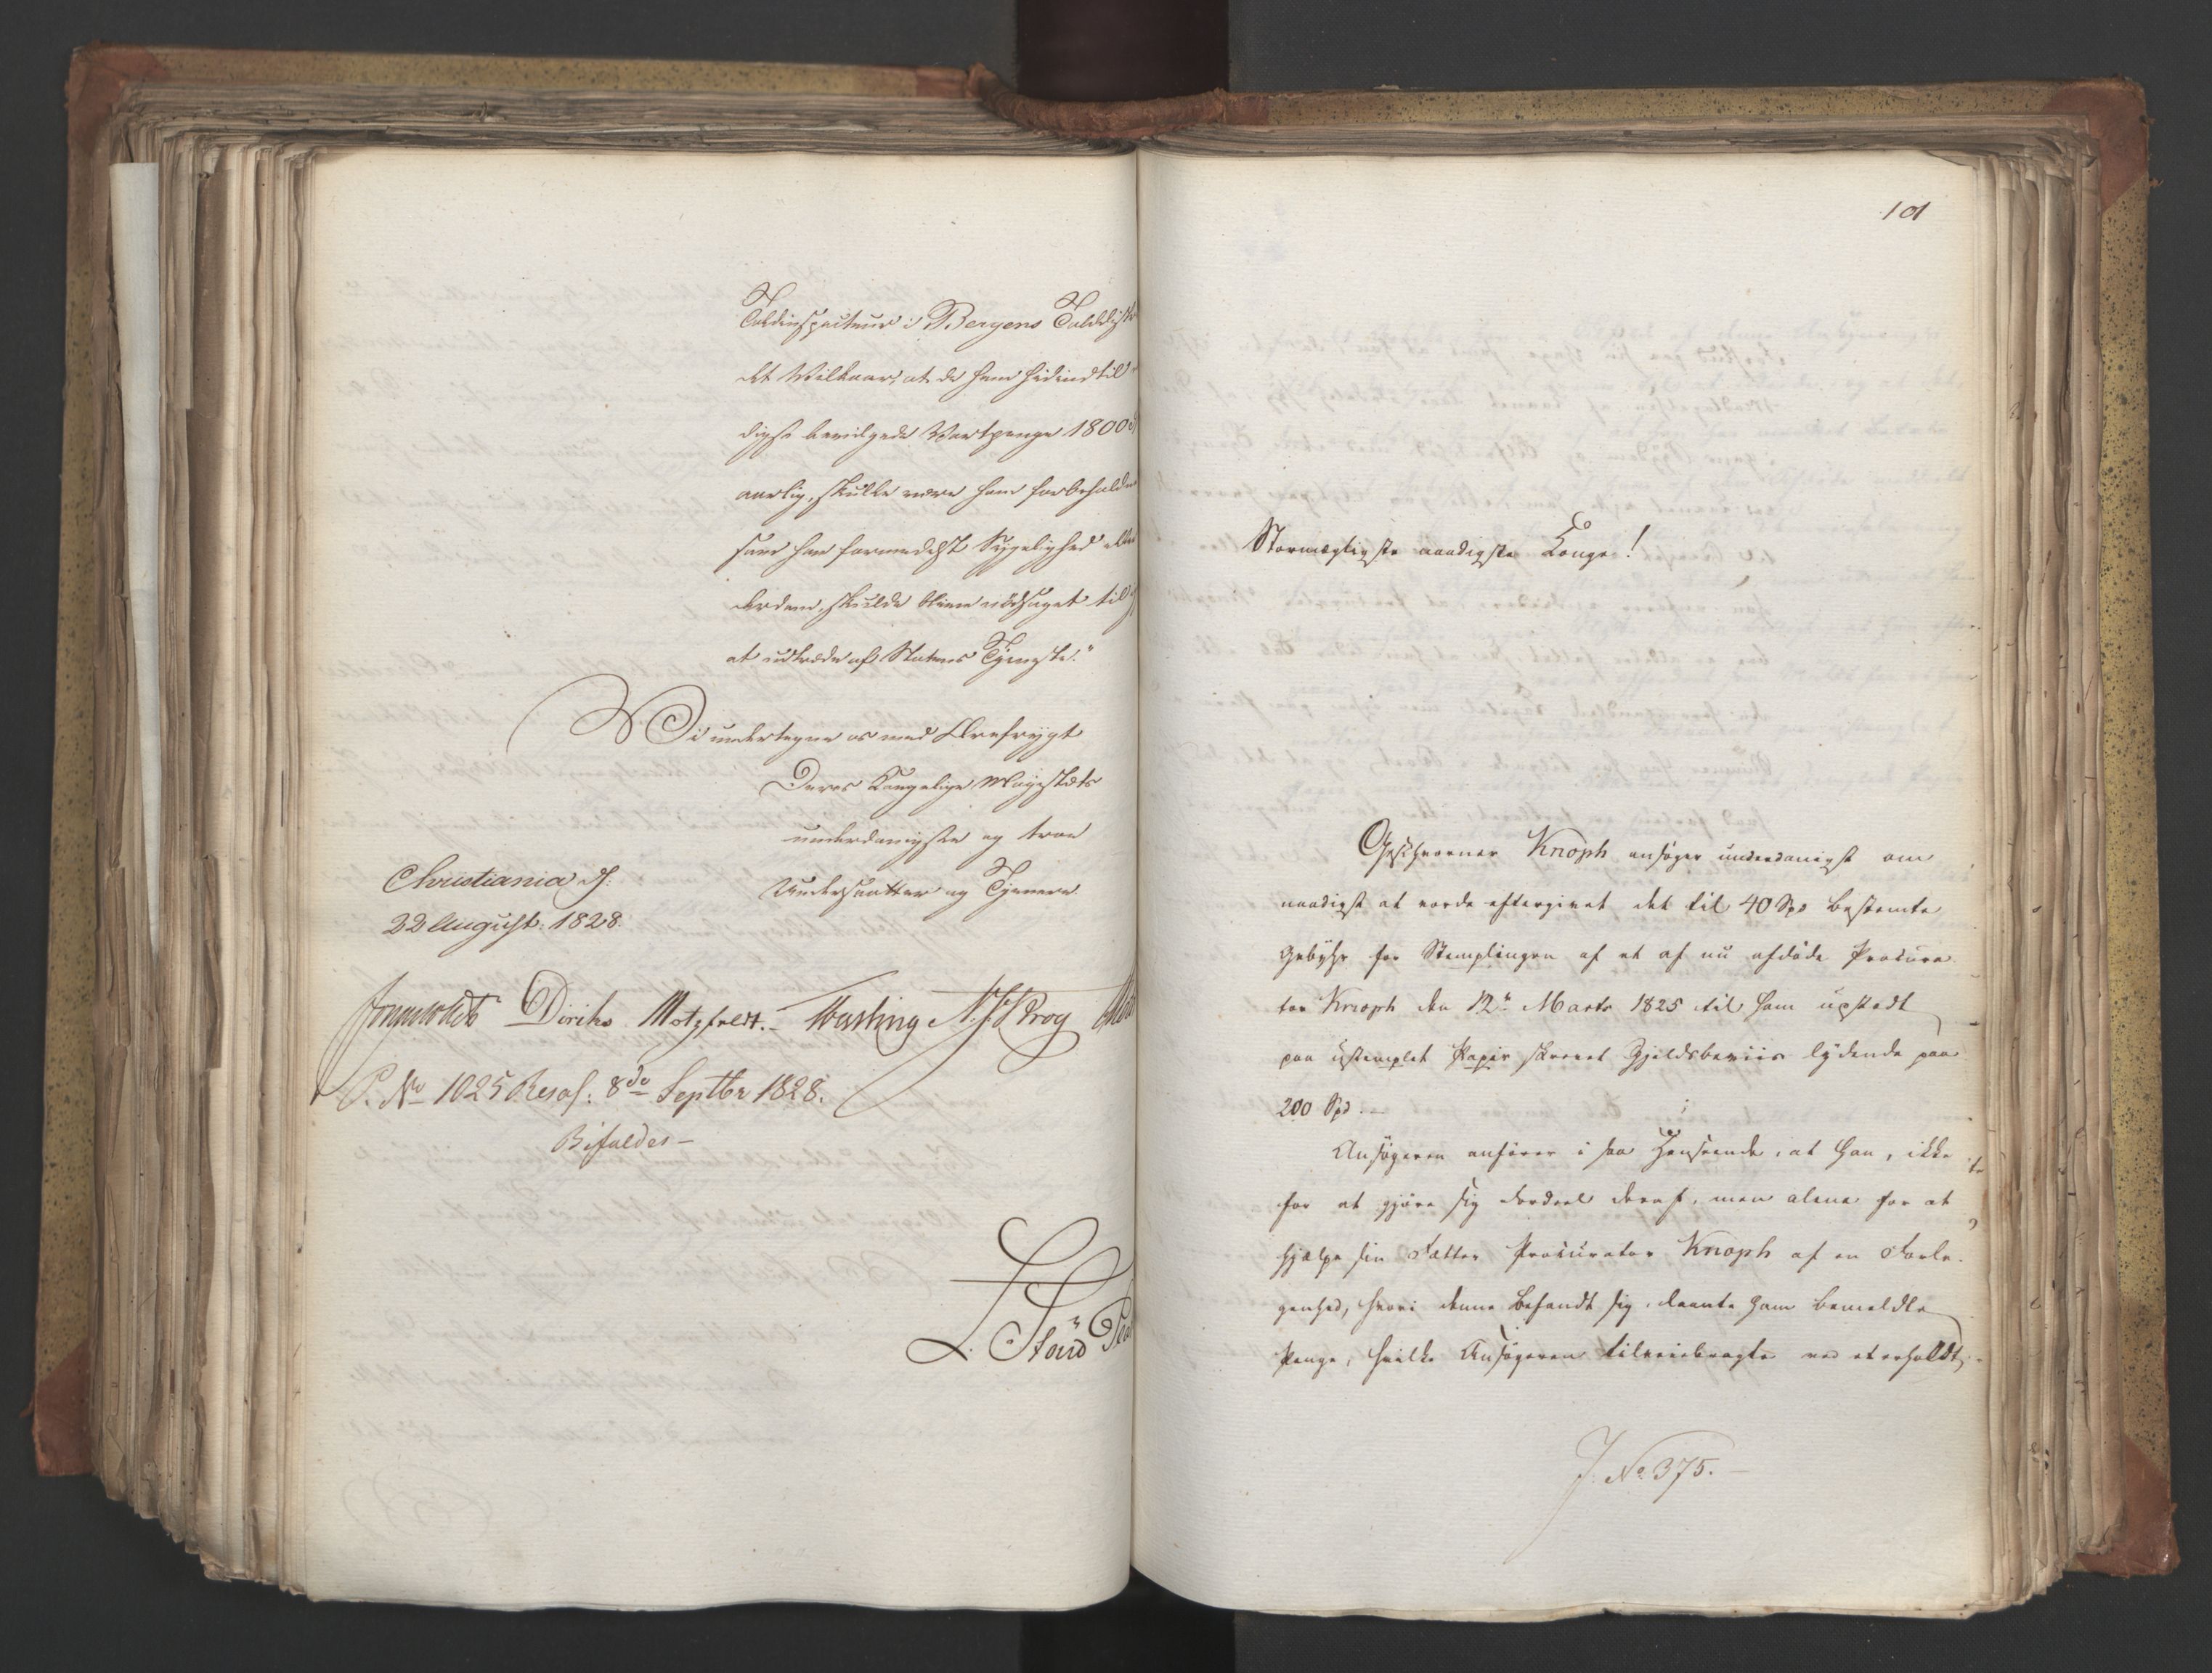 Toldinspecteur i Bergens Tolddistr
det Vilkaar, at de ham hidindtil
digst bevilgede Vartpenge 1800
aarlig, skulle være ham forbeholdne
som han formedelst Sygelighed eller
derdom, skulde blive nödsaget til
at udtræde af Statens Tjeneste."
Vi undertegne os med Ærefrygt
Deres Kongelige Majestæts
underdanigste og troe
Undersaatter og Tjenere
Christiania d.
22 August: 1828.
Diriks Motzfeldt. Fasting N. J. Krog
P. No 1025 Resol: 8de Septbr 1828.
Bifaldes -
101
Stormægtigste naadigste Konge!
Geschworner Knoph ansöger underdanigst om
naadigst at vorde eftergivet det til 40 Spd bestemte
Gebyhr for Stemplingen af et af nu afdöde Procura
tor Knoph den 12te Marts 1825 til ham udstedt
paa ustemplet Papir skrevet Gjeldsbeviis lydende paa
200 Spd. -
Ansögeren anförer i saa Henseende, at han, ikke
for at gjöre sig Fordeel deraf, men alene for at
hjælpe sin Fætter Procurator Knoph af en Forle-
genhed, hvori denne befandt sig, laante ham bemeldte
Penge, hvilke Ansögeren tilveiebragte ved et erholdt
J. No 375. -